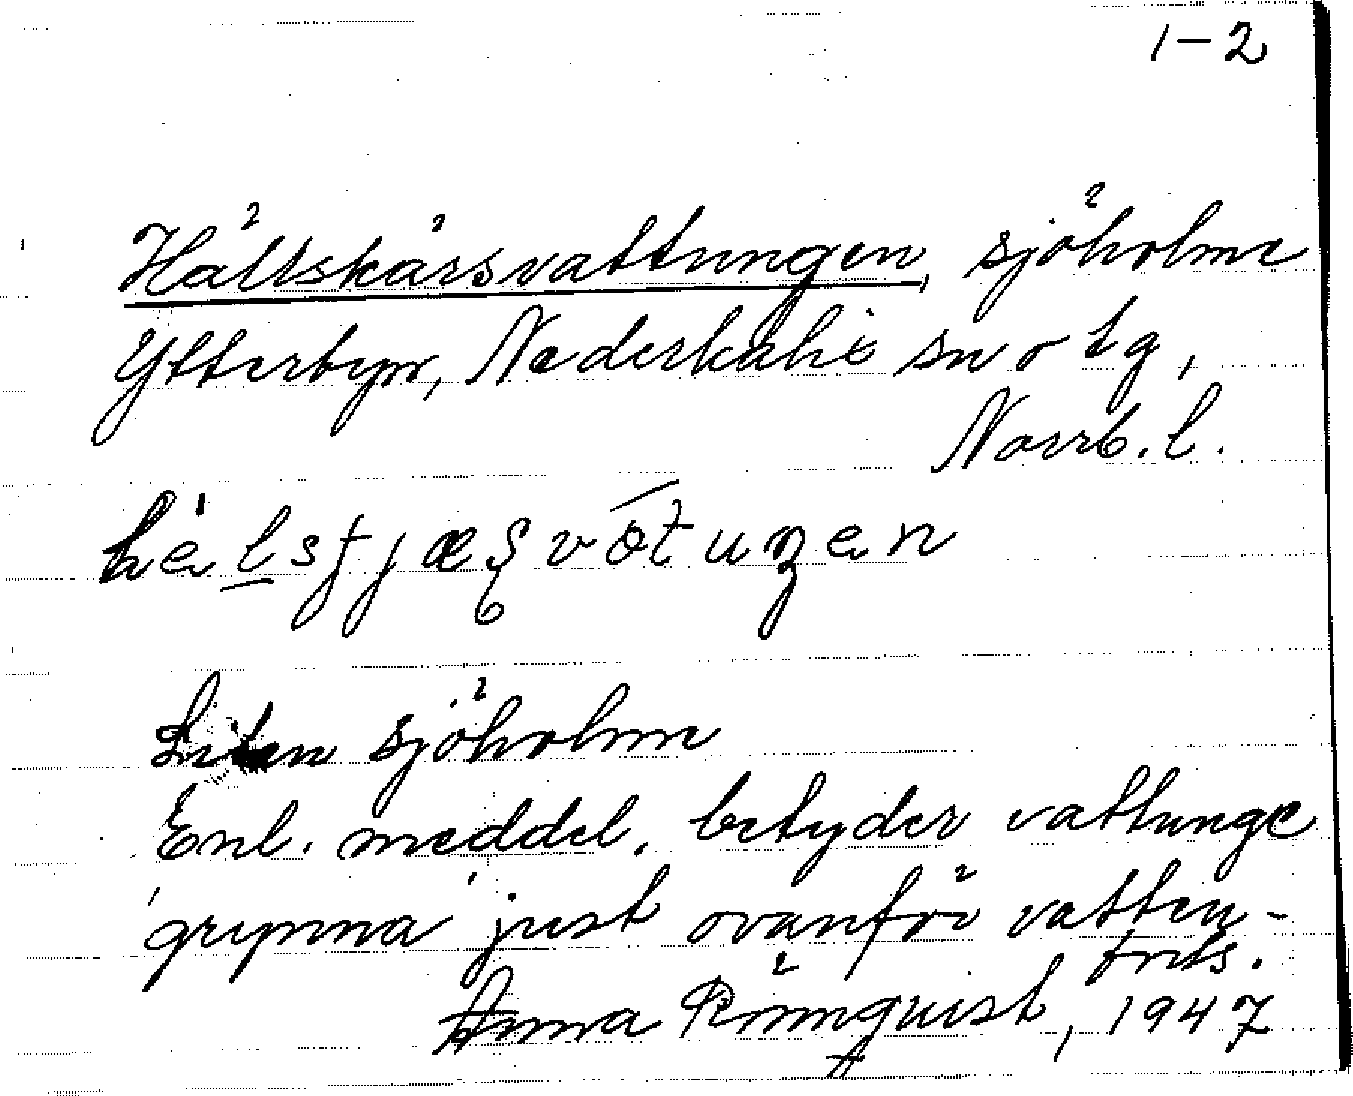 1-2
Hällskärsvattungen, sjöholme
Ytterbyn, Nederkalix sn o tg,
Norrb. l.
Liten sjöholme
Enl. meddel. betyder vattunge
'grynna' just ovanför vatten-
brits.
Anna Rönnquist, 1947